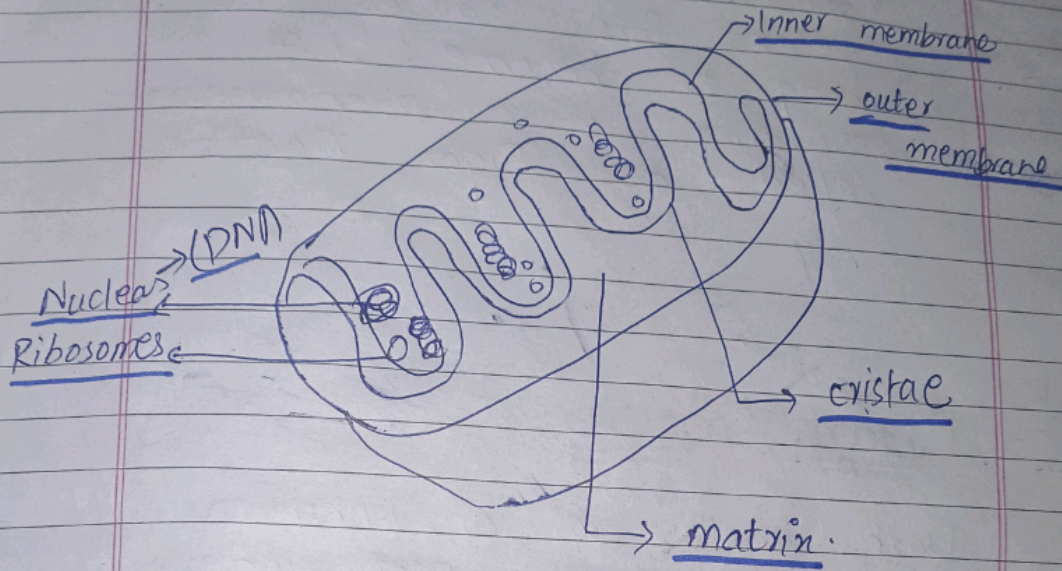 Inner membrane
outer
membrane
(DNA
Nucleas
Ribosomes
cristae
matrix.